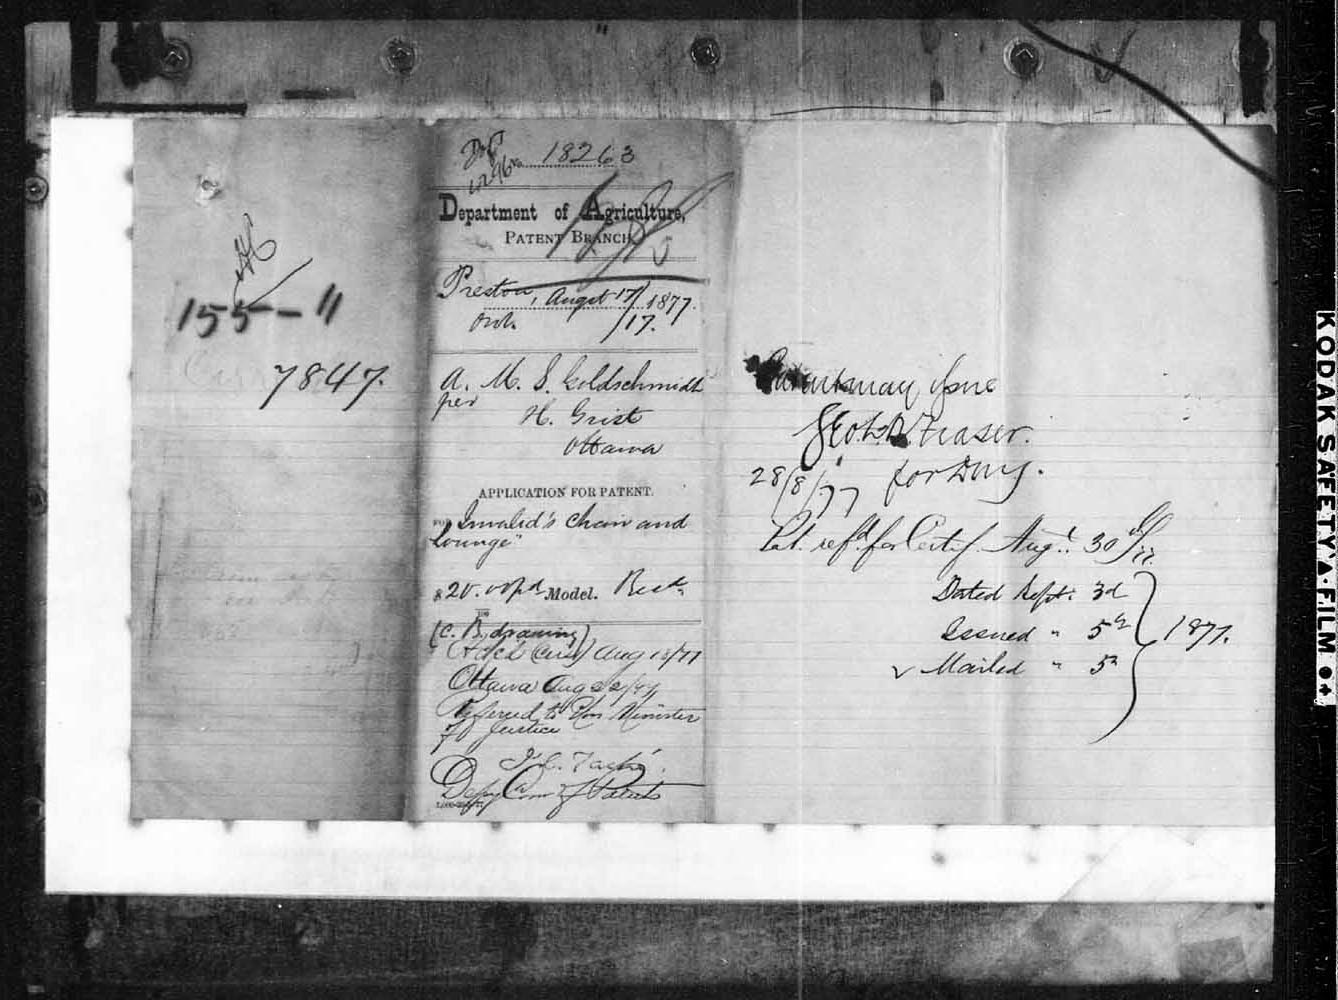 155-11
7847.
No. 18263
Department of Agriculture,
PATENT BRANCH
Preston, Augst 17/1877.
Ont. /17.
A. M. S. Goldschmidt
per
H. Grist
Ottawa
APPLICATION FOR PATENT.
FOR Invalid's Chair and
Lounge"
$20.00 pd Model. Recd.
100
(C. B. drawing)
Aug 18/77
Ottawa Aug 22/77
Referred to Hon Minister
of Justice
J. C. Taché.
Depy Com of Patents
Patent may issue
Geo. L. B. Fraser.
28/8/77 for D.M.J.
Pat. refd. for Certif. Augt. 30th/77.
Dated Sept. 3d
Issued " 5th 1877.
Mailed " 5th
KODAK SAFETY FILM